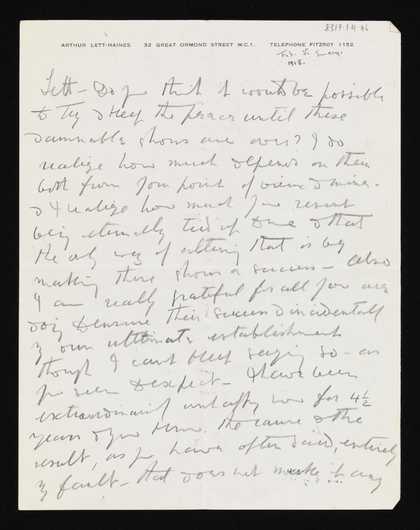 8317.1.4.46
ARTHUR LETT-HAINES 32 GREAT ORMOND STREET W.C.1. TELEPHONE FITZROY 1152
Lett – Do you think it would be possible
to try & keep the peace until these
damnable shows are over? I do
realize how much depends on them
both from your point of view & mine.
& I realize how much you resent
being eternally tied up to me & that
the only way of altering that is by
making these shows a success – also
I am really grateful for all you are
doing to ensure their success & incidentally
my own ultimate establishment
though I cant keep saying so – as
you seem to expect – I have been
extraordinarily unhappy now for 4½
years & you know the cause & the
result, as you have often said, entirely
my fault – that does not make it any